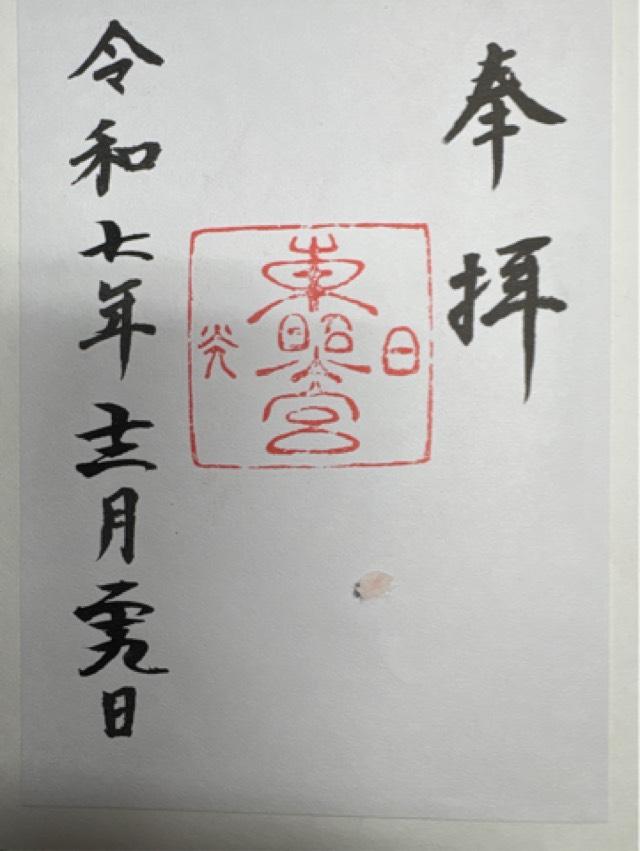 奉拝
日光
東照宮
令和七年十二月二十九日